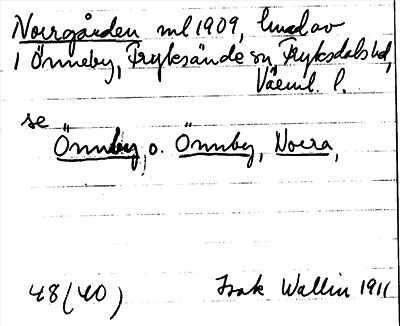 Norrgården ml 1909, hmd av
1 Önneby, Fryksände sn, Fryksdals hd,
Värml. l.
se
Önnby, o. Önnby, Norra,
48 (40) Isak Wallin 1911